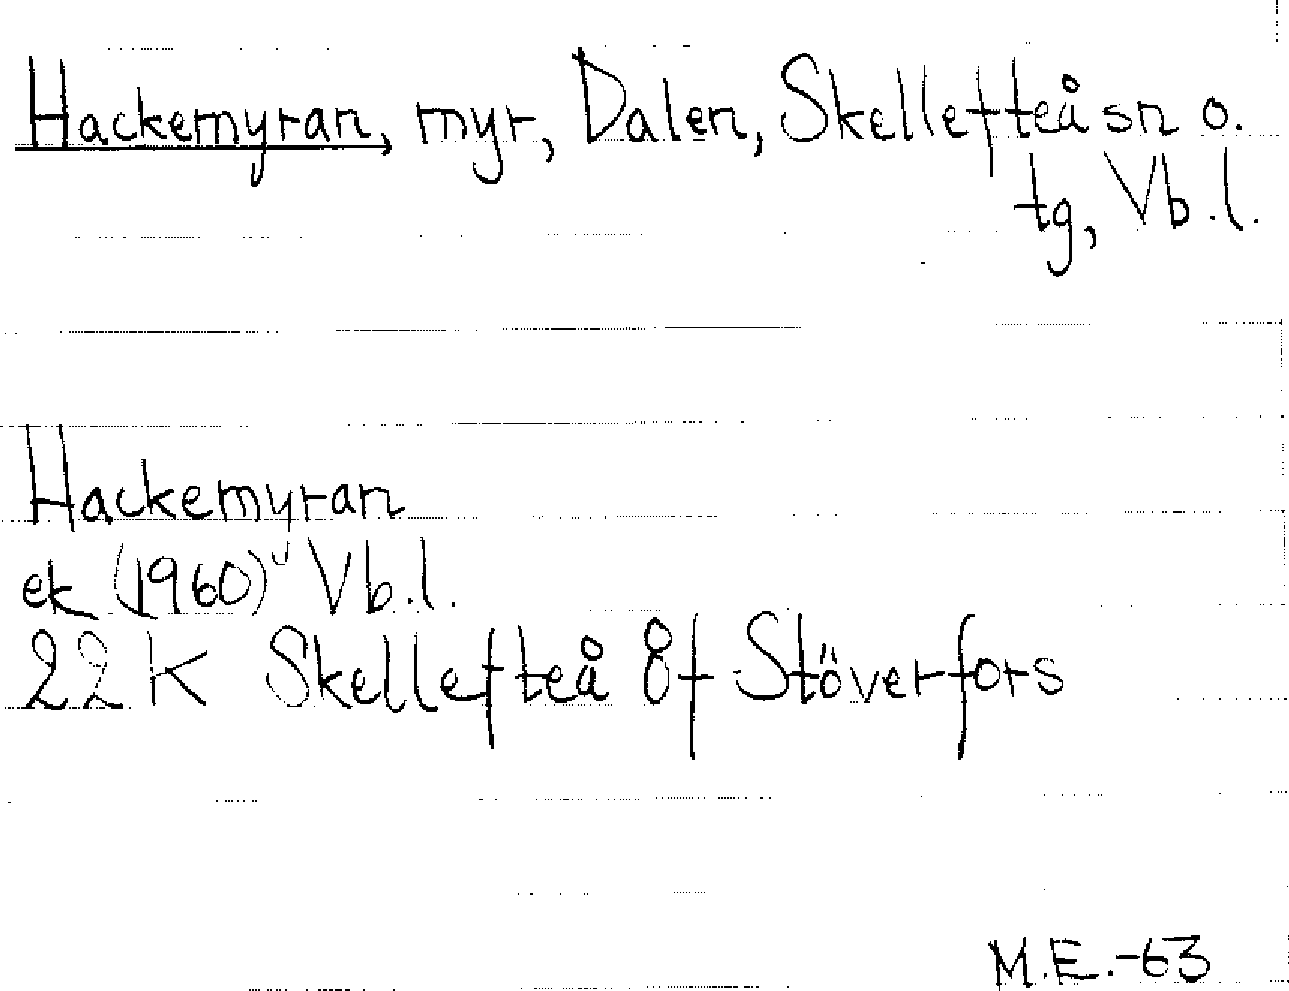 Hackemyran, myr, Dalen, Skellefteå sn o.
tg, Vb.l.
Hackemyran
ek (1960) Vb.l.
22 K Skellefteå 8f Stöverfors
M.E.-63